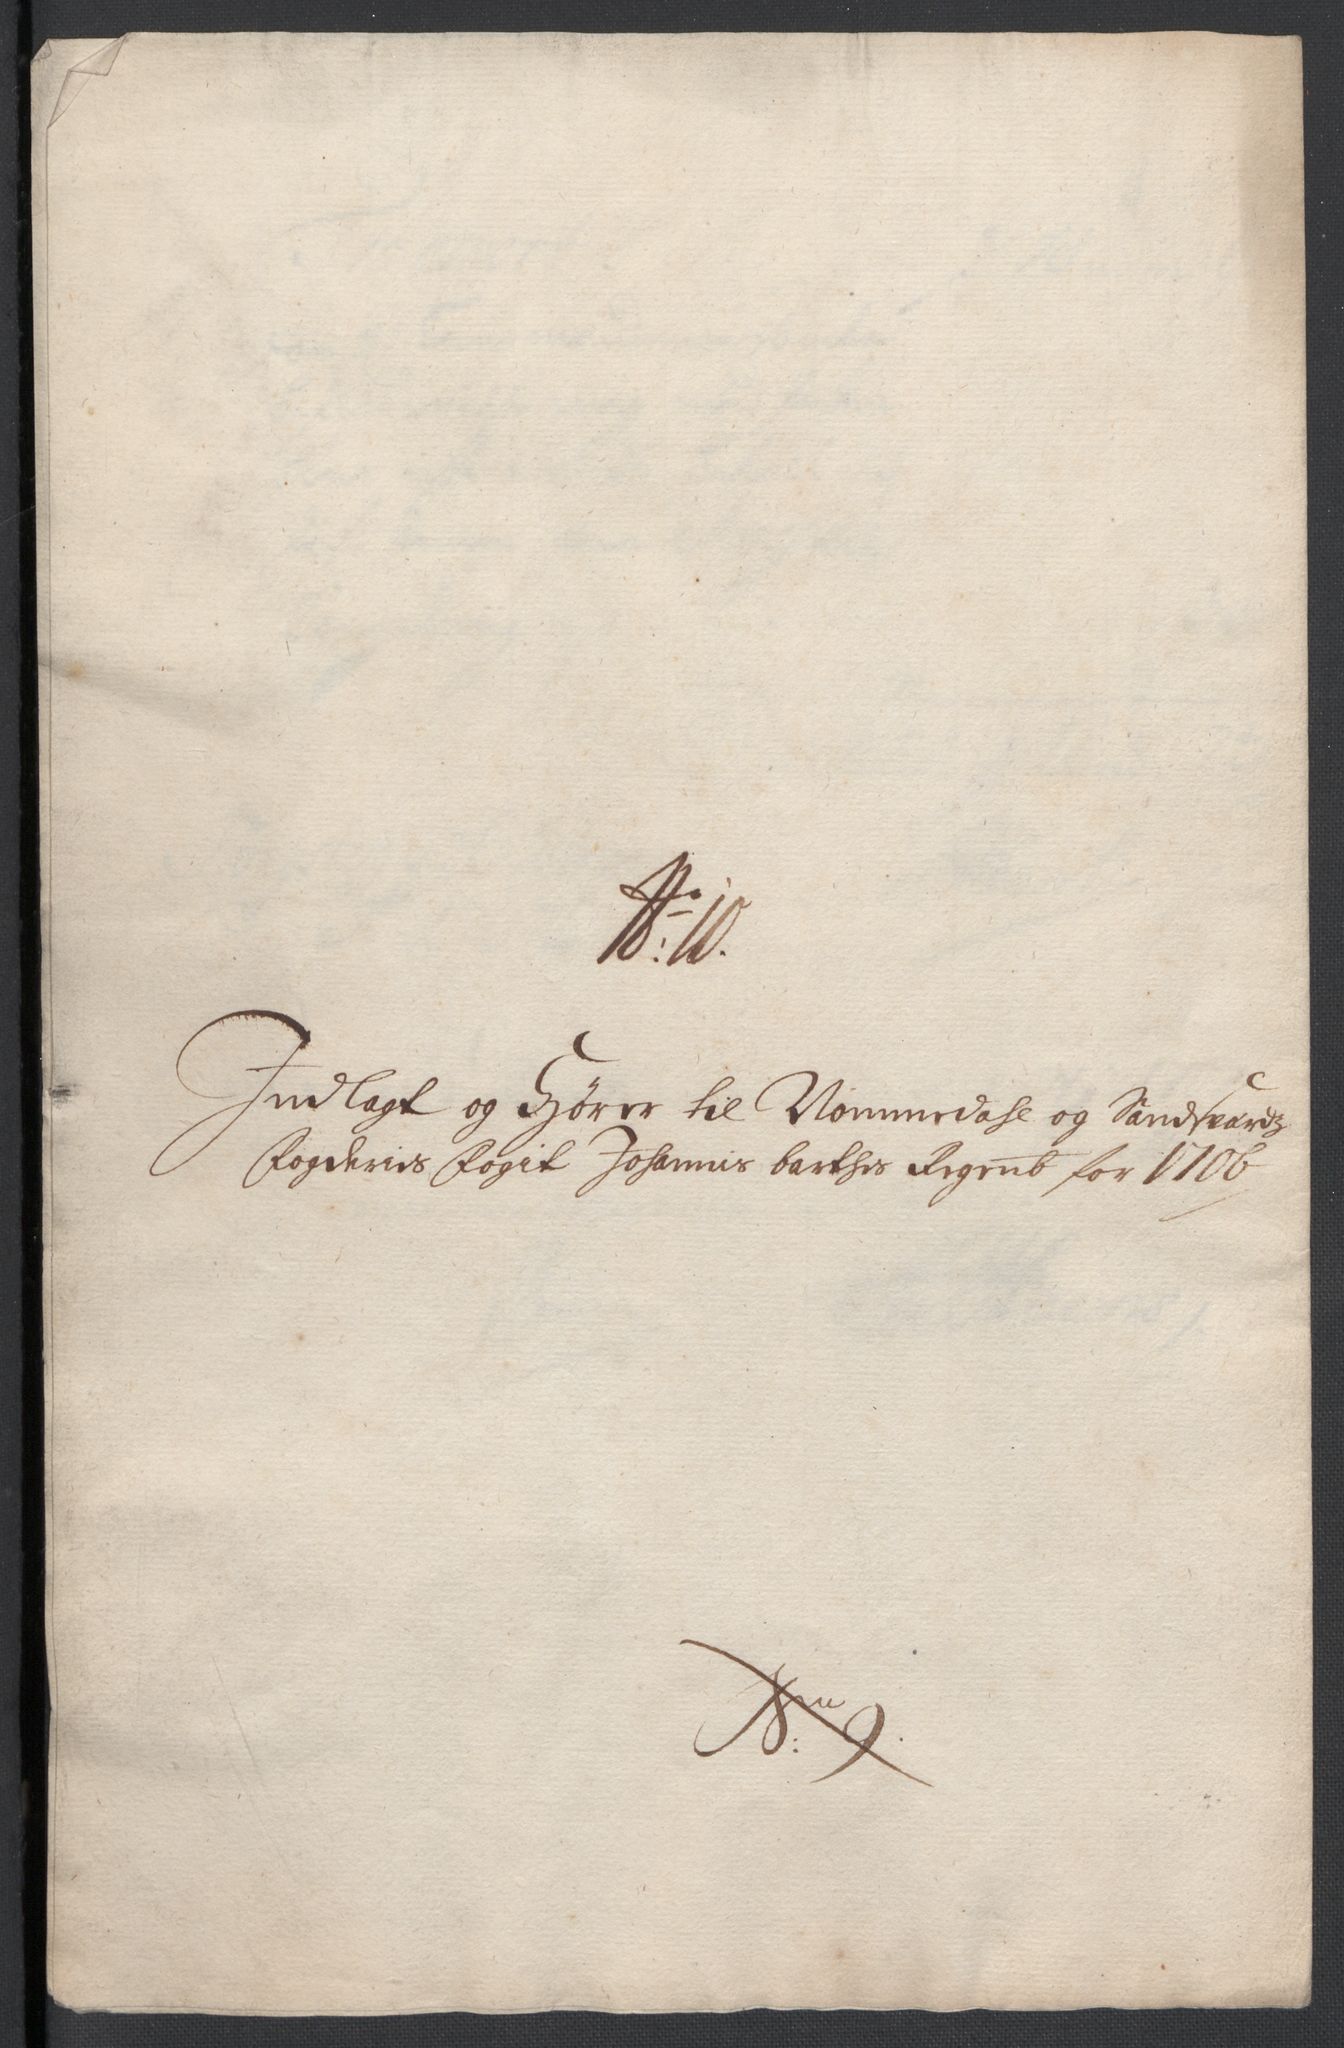 No: 10.
Indlagt og Hörer til Nommedahl og Sandsværdz
Fogderies Fogit Johannis barthes Regensb for 1706
No: 9.